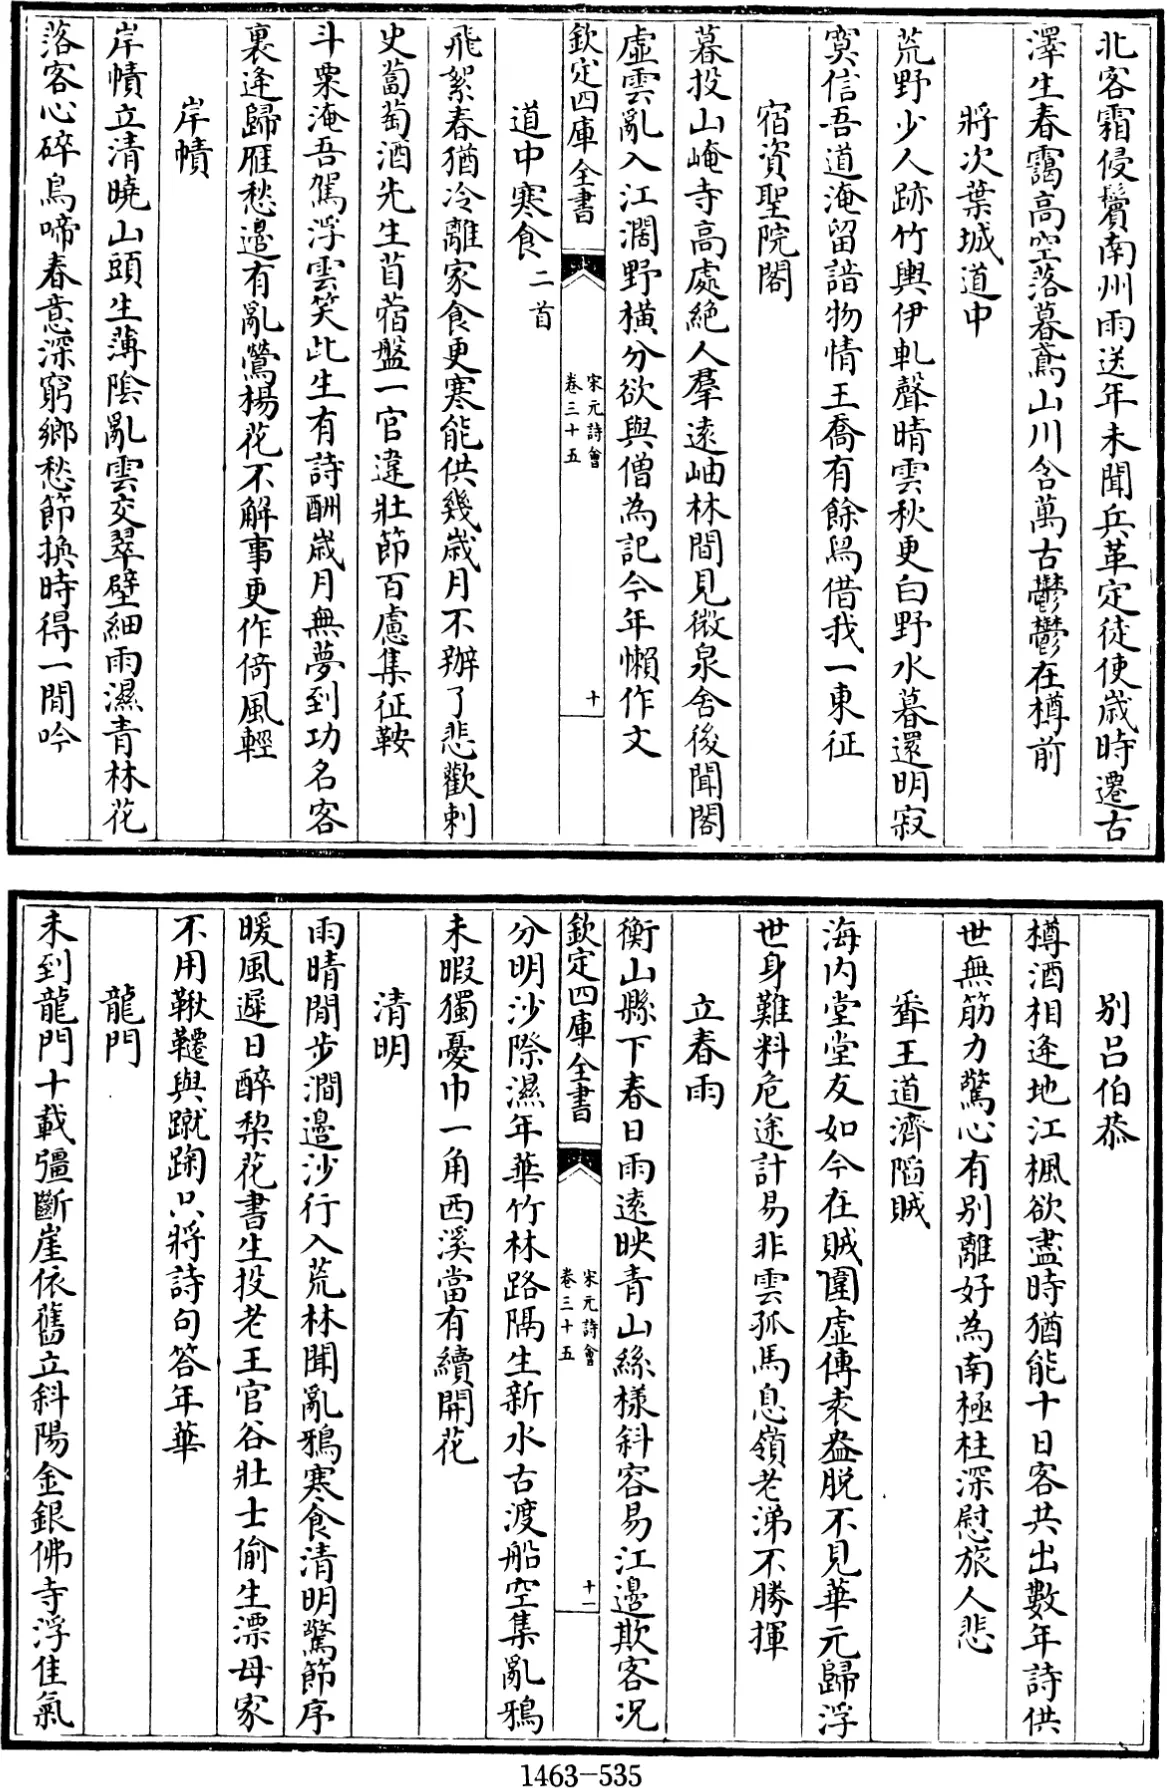 北客霜侵鬢南州雨送年未聞兵革定徒使歲時遷古
澤生春靄高空落暮鳶山川含萬古鬱鬱在樽前
將次葉城道中
荒野少人跡竹輿伊軋聲晴雲秋更白野水暮還明寂
寞信吾道淹留諳物情王喬有餘舄借我一東征
宿資聖院閣
暮投山崦寺高處絶人羣遠岫林間見微泉舍後聞閣
虛雲亂入江濶野橫分欲與僧為記今年懶作文
欽定四庫全書
宋元詩會
卷三十五
十
道中寒食二首
飛絮春猶冷離家食更寒能供幾歲月不辦了悲歡刺
史蔔萄酒先生苜蓿盤一官違壯節百慮集征鞍
斗粟淹吾駕浮雲笑此生有詩酬歲月無夢到功名客
裏逢歸雁愁邉有亂鶯楊花不解事更作倚風輕
岸幘
岸幘立清曉山頭生薄隂亂雲交翠壁細雨濕青林花
落客心碎鳥啼春意深窮鄉愁節換時得一閒吟
别吕伯恭
樽酒相逢地江楓欲盡時猶能十日客共出數年詩供
世無筋力驚心有别離好為南極柱深慰旅人悲
聞王道濟陷賊
海内堂堂友如今在賊圍虛傳袁盎脱不見華元歸浮
世身難料危途計易非雲孤馬息嶺老涕不勝揮
立春雨
衡山縣下春日雨遠映青山絲様斜容易江邉欺客况
分明沙際濕年華竹林路隔生新水古渡船空集亂鴉
未暇獨憂巾一角西溪當有續開花
欽定四庫全書
宋元詩會
卷三十五
十一
清明
雨晴閒步澗邉沙行入荒林聞亂鴉寒食清明驚節序
暖風遲日醉梨花書生投老王官谷壯士偷生漂母家
不用鞦韆與蹴踘只將詩句答年華
龍門
未到龍門十載彊斷崖依舊立斜陽金銀佛寺浮佳氣
1463-535